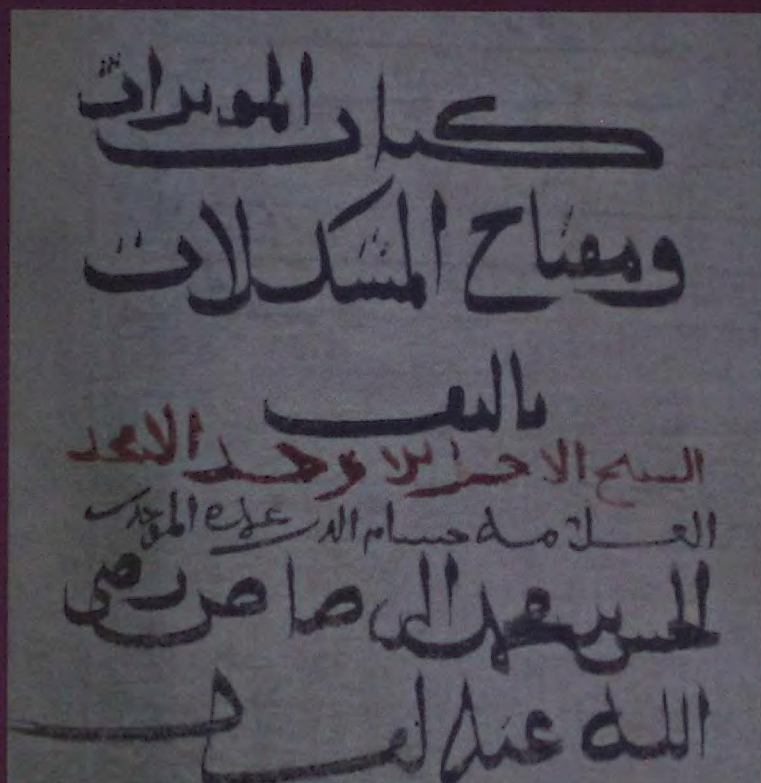 كتاب المؤثرات
ومفتاح المشكلات
تاليف
الشيخ الاجل الاوحد الامجد
العلامة حسام الدين عمدة الموحدين
الحسن بن محمد الرصاص رضي
الله عنه تعالى